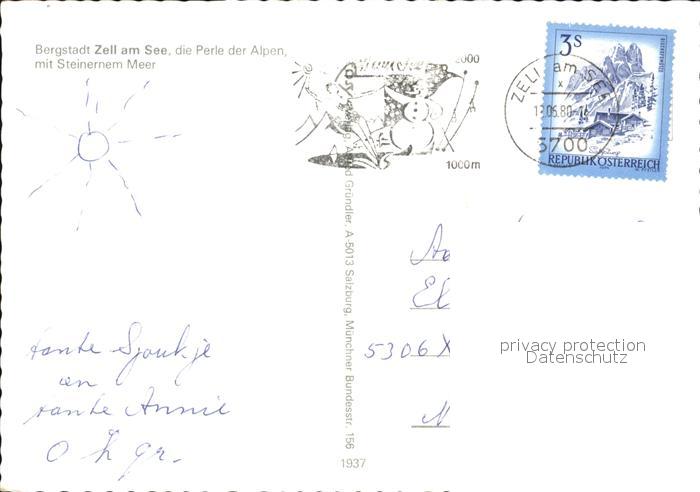 Bergstadt Zell am See, die Perle der Alpen,
mit Steinernem Meer
2000
1000m
3S
ZELL am SEE
5700
REPUBLIK ÖSTERREICH
nd Gründler, A-5013 Salzburg, Münchner Bundesstr. 156
5306 X
privacy protection
Datenschutz
tante Sjoukje
en
tante Annie
O h gr.
1937